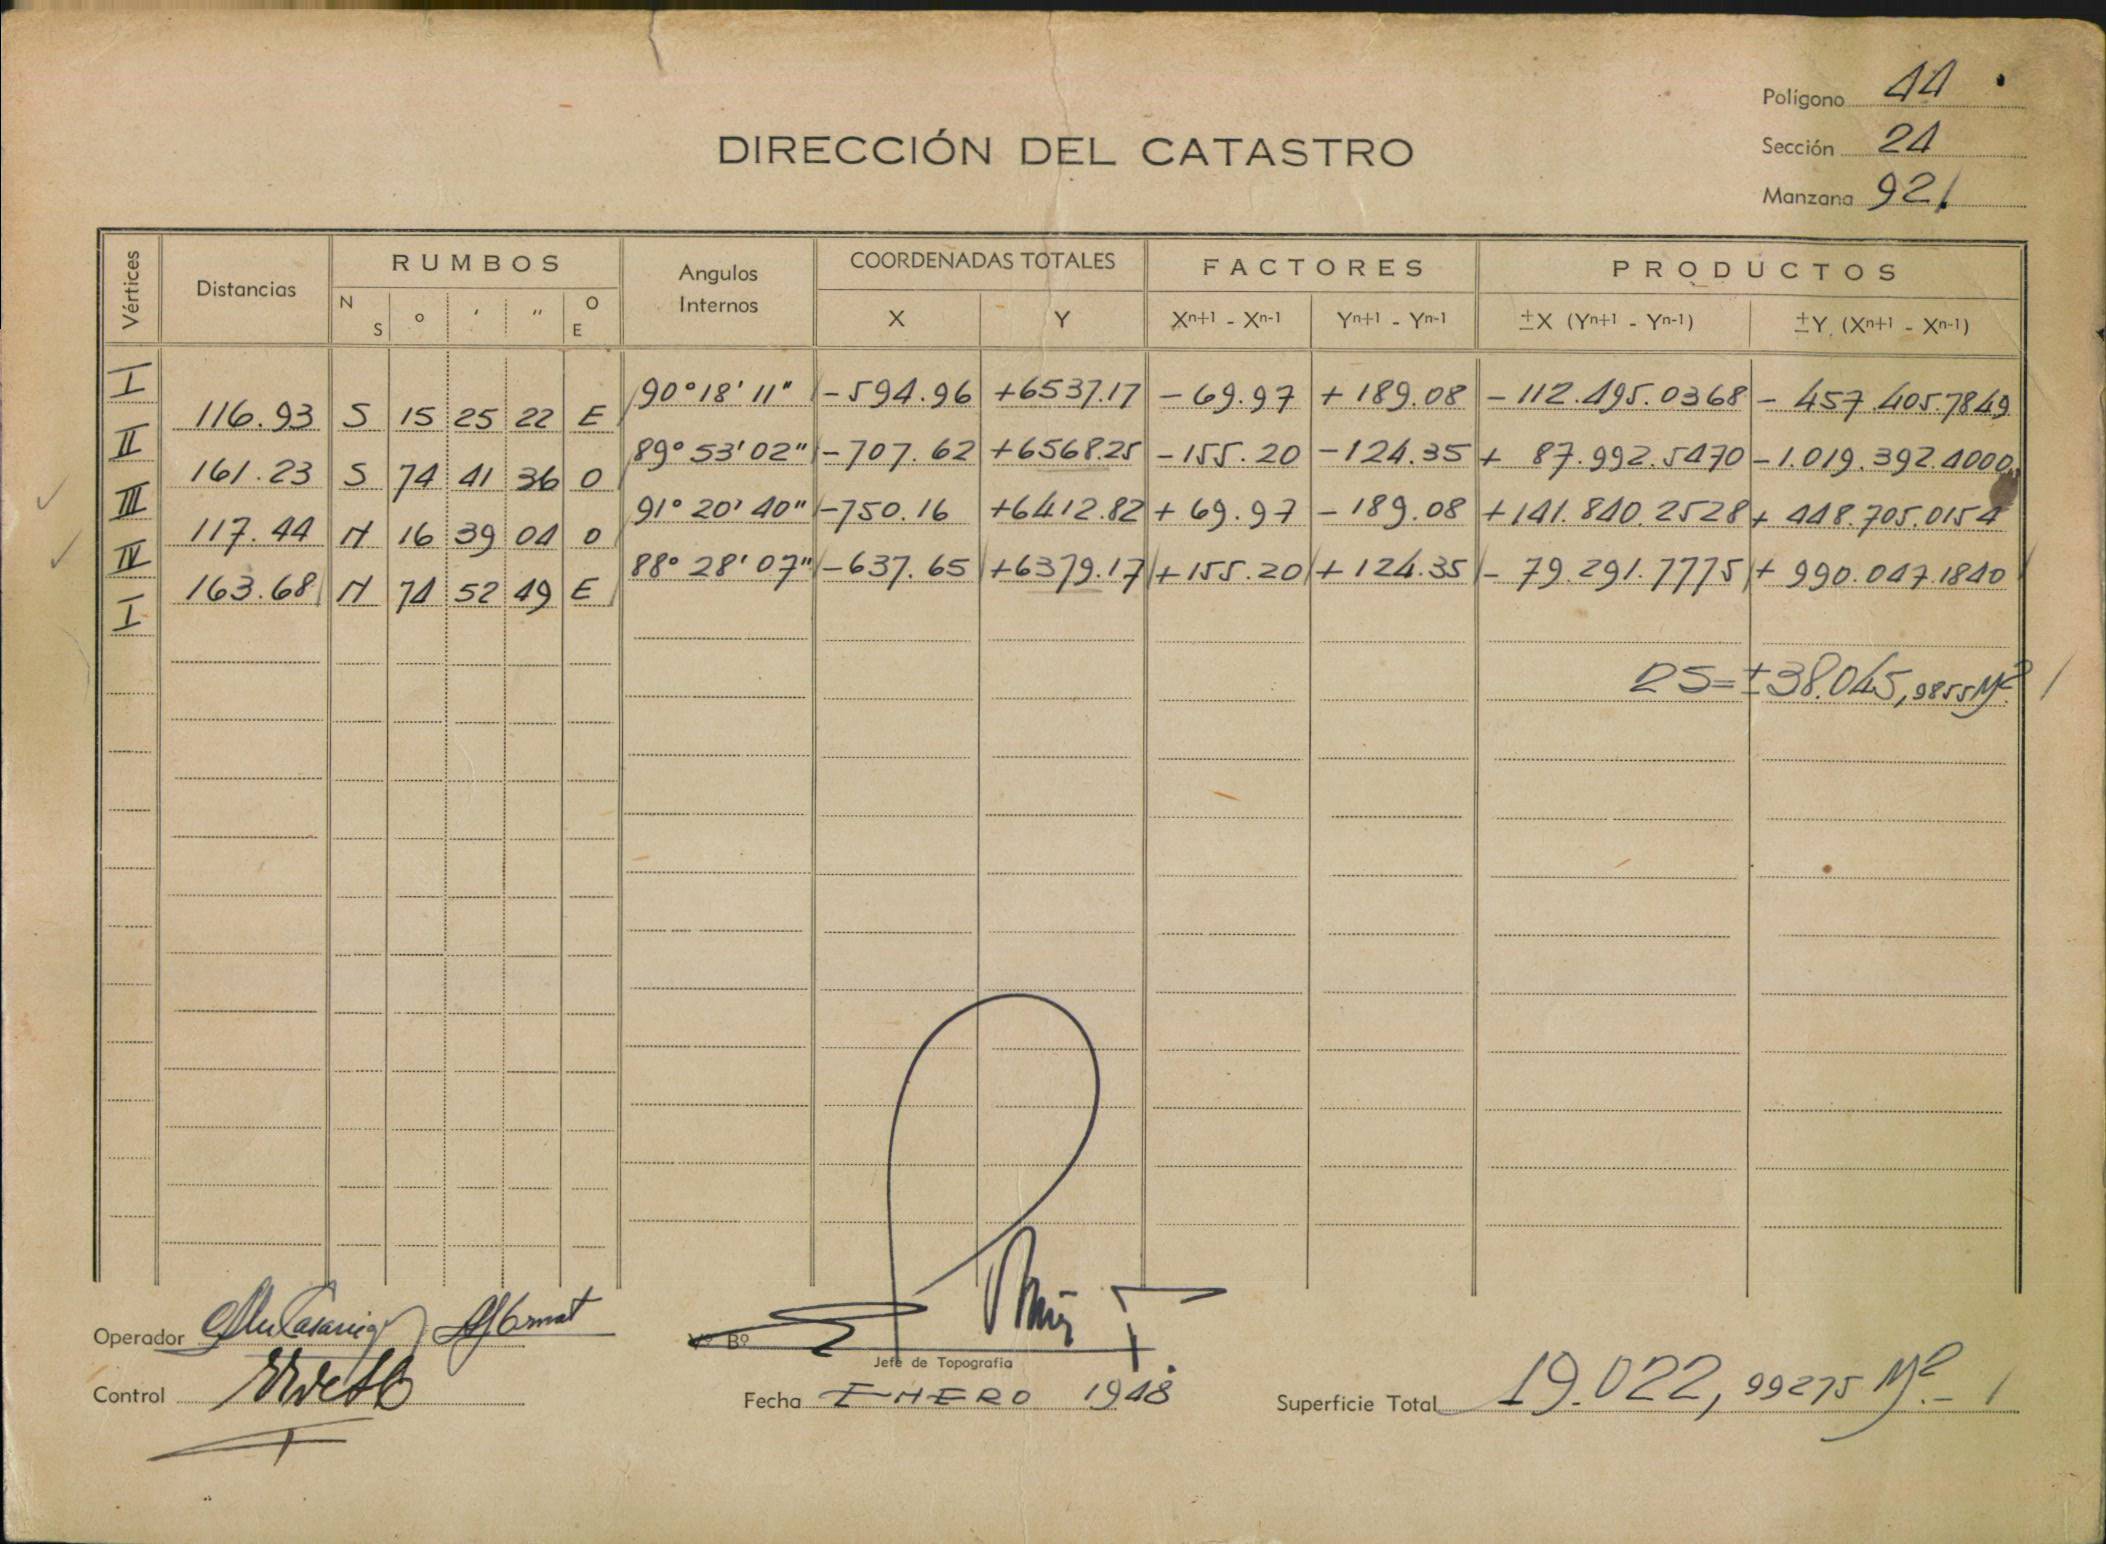 Polígono 44
DIRECCIÓN DEL CATASTRO
Sección 24
Manzana 92
Vértices Distancias RUMBOS Angulos Internos COORDENADAS TOTALES FACTORES PRODUCTOS
N S ° ' " O E X Y Xn+1 - Xn-1 Yn+1 - Yn-1 ±X (Yn+1 - Yn-1) ±Y (Xn+1 - Xn-1)
I 90° 18' 11" -594.96 +6537.17 -69.97 +189.08 -112.495.0368 -457.405.7849
116.93 S 15 25 22 E
II 89° 53' 02" -707.62 +6568.25 -155.20 -124.35 +87.992.5470 -1.019.392.4000
161.23 S 74 41 36 O
III 91° 20' 40" -750.16 +6412.82 +69.97 -189.08 +141.840.2528 +448.705.0154
117.44 N 16 39 04 O
IV 88° 28' 07" -637.65 +6379.17 +155.20 +124.35 -79.291.7775 +990.047.1840
163.68 N 74 52 49 E
I
2S=±38.045,9855 M²
Operador
Vº Bº
Jefe de Topografia
Control
Fecha ENERO 1948.
Superficie Total 19.022,99275 M².-